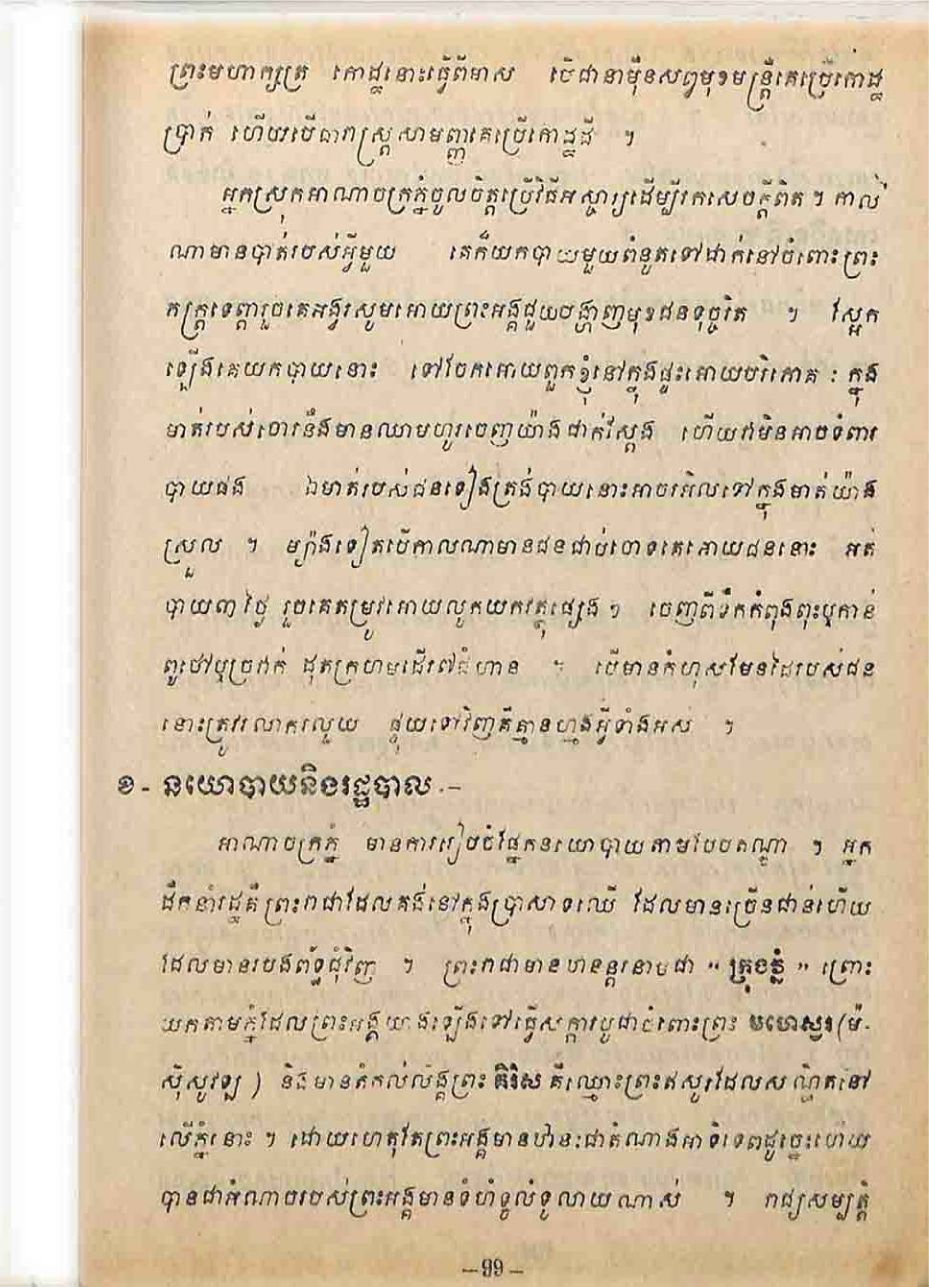 ព្រះមហាក្សត្រ កោដ្ឋនោះធ្វើពីមាស បើជានាម៉ឺនសព្វមុខមន្ត្រីគេប្រើកោដ្ឋ
ប្រាក់ ហើយបើជារាស្ត្រសាមញ្ញគេប្រើកោដ្ឋដី ។
អ្នកស្រុកអាណាចក្រភ្នំចូលចិត្តប្រើវិធីអស្ចារ្យដើម្បីរកសេចក្តីពិត ។ កាល
ណាមានបាត់របស់អ្វីមួយ គេក៏យកបាយមួយពំនូតទៅដាក់នៅចំពោះព្រះ
កក្ត្រទេព្តារួចគេអង្វរសូមអោយព្រះអង្គជួយបង្ហាញមុខជនទុច្ចរិត ។ ស្អែក
ឡើងគេយកបាយនោះ ទៅចែកអោយពួកខ្ញុំនៅក្នុងផ្ទះអោយបរិភោគ : ក្នុង
មាត់របស់ចោរនឹងមានឈាមហូរចេញយ៉ាងជាក់ស្តែង ហើយវាមិនអាចទំពារ
បាយផង ឯមាត់របស់ជនទៀងត្រង់បាយនោះអាចរអិលទៅក្នុងមាត់យ៉ាង
ស្រួល ។ ម្យ៉ាងទៀតបើកាលណាមានជនជាប់ចោទគេអោយជននោះ អត់
បាយ៣ថ្ងៃ រួចគេតម្រូវអោយលូកយកវត្ថុផ្សេង ។ ចេញពីទឹកកំពុងពុះឬកាន់
ពូថៅឬច្រវ៉ាក់ ដុតក្រហមដើរ៧ជំហាន ។ បើមានកំហុសមែនដៃរបស់ជន
នោះត្រូវរលាករលួយ ផ្ទុយទៅវិញគឺគ្មានហ្មងអ្វីទាំងអស់ ។
ខ - នយោបាយនិងរដ្ឋបាល .–
អាណាចក្រភ្នំ មានការរៀបចំផ្នែកនយោបាយតាមបែបឥណ្ឌា ។ អ្នក
ដឹកនាំរដ្ឋគឺព្រះរាជាដែលគង់នៅក្នុងប្រាសាទឈើ ដែលមានច្រើនជាន់ហើយ
ដែលមានរបងព័ទ្ធជុំវិញ ។ ព្រះរាជាមានឋានន្តរនាមជា « ក្រុងភ្នំ » ព្រោះ
យកតាមភ្នំដែលព្រះអង្គយាងឡើងទៅធ្វើសក្ការបូជាចំពោះព្រះ មហេស្វរ (ម៉-
ស៊ីសូវឡូ ) និងមានតំកល់លិង្គព្រះ គិរិស គឺឈ្មោះព្រះឥសូរដែលសណ្ឋិតនៅ
លើភ្នំនោះ ។ ដោយហេតុតែព្រះអង្គមានឋានៈជាតំណាងអាទិទេពដូច្នេះហើយ
បានជាអំណាចរបស់ព្រះអង្គមានទំហំទូលំទូលាយណាស់ ។ រាជ្យសម្បត្តិ
– 99 –